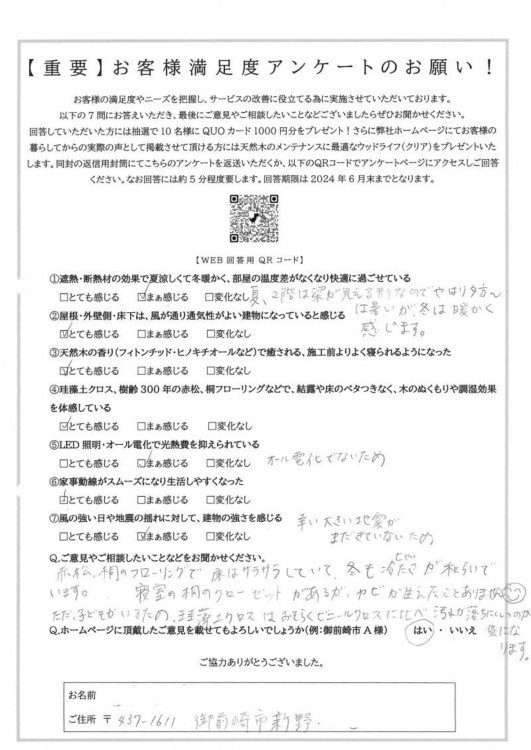 【重要】お客様満足度アンケートのお願い！
お客様の満足度やニーズを把握し、サービスの改善に役立てる為に実施させていただいております。
以下の7問にお答えいただき、最後にご意見やご相談したいことなどございましたらぜひお聞かせください。
回答していただいた方には抽選で10名様にQUOカード1000円分をプレゼント！さらに弊社ホームページにてお客様の
暮らしてからの実際の声として掲載させて頂ける方には天然木のメンテナンスに最適なウッドライフ(クリア)をプレゼントいた
します。同封の返信用封筒にてこちらのアンケートを返送いただくか、以下のQRコードでアンケートページにアクセスしご回答
ください。なお回答には約5分程度要します。回答期限は2024年6月末までとなります。
【WEB回答用QRコード】
①遮熱・断熱材の効果で夏涼しくて冬暖かく、部屋の温度差がなくなり快適に過ごせている
□とても感じる ☑まぁ感じる □変化なし
夏、2階は梁が見える形なのでやはり夕方〜
は暑いが、冬は暖かく
感じます。
②屋根・外壁側・床下は、風が通り通気性がよい建物になっていると感じる
☑とても感じる □まぁ感じる □変化なし
③天然木の香り(フィトンチッド・ヒノキチオールなど)で癒される、施工前よりよく寝られるようになった
☑とても感じる □まぁ感じる □変化なし
④珪藻土クロス、樹齢300年の赤松、桐フローリングなどで、結露や床のベタつきなく、木のぬくもりや調湿効果
を体感している
☑とても感じる □まぁ感じる □変化なし
⑤LED照明・オール電化で光熱費を抑えられている
□とても感じる ☑まぁ感じる □変化なし
オール電化でないため
⑥家事動線がスムーズになり生活しやすくなった
☑とても感じる □まぁ感じる □変化なし
⑦風の強い日や地震の揺れに対して、建物の強さを感じる
□とても感じる ☑まぁ感じる □変化なし
幸い大きい地震が
まだきていないため
Q.ご意見やご相談したいことなどをお聞かせください。
赤松、桐のフローリングで床はサラサラしていて、冬も冷たさが和らいで
います。 寝室の桐のクローゼットがあるが、カビが生えたことあほ
ただ、子どもがいるため、珪藻土クロスはおそらくビニールクロスに比べ汚れが落ちにくいのが
気にな
ります。
Q.ホームページに頂戴したご意見を載せてもよろしいでしょうか(例：御前崎市A様) はい ・ いいえ
ご協力ありがとうございました。
お名前
ご住所 〒 437-1611 御前崎市新野